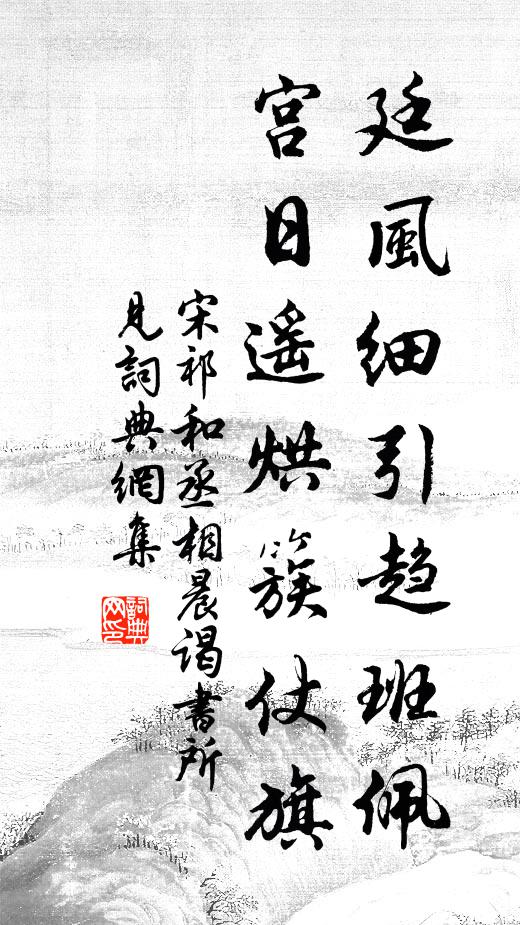 廷風細引趋班佩
宫日遥烘簇仗旗
宋祁和丞相晨谒書所
見詞典網集
詞典
网印